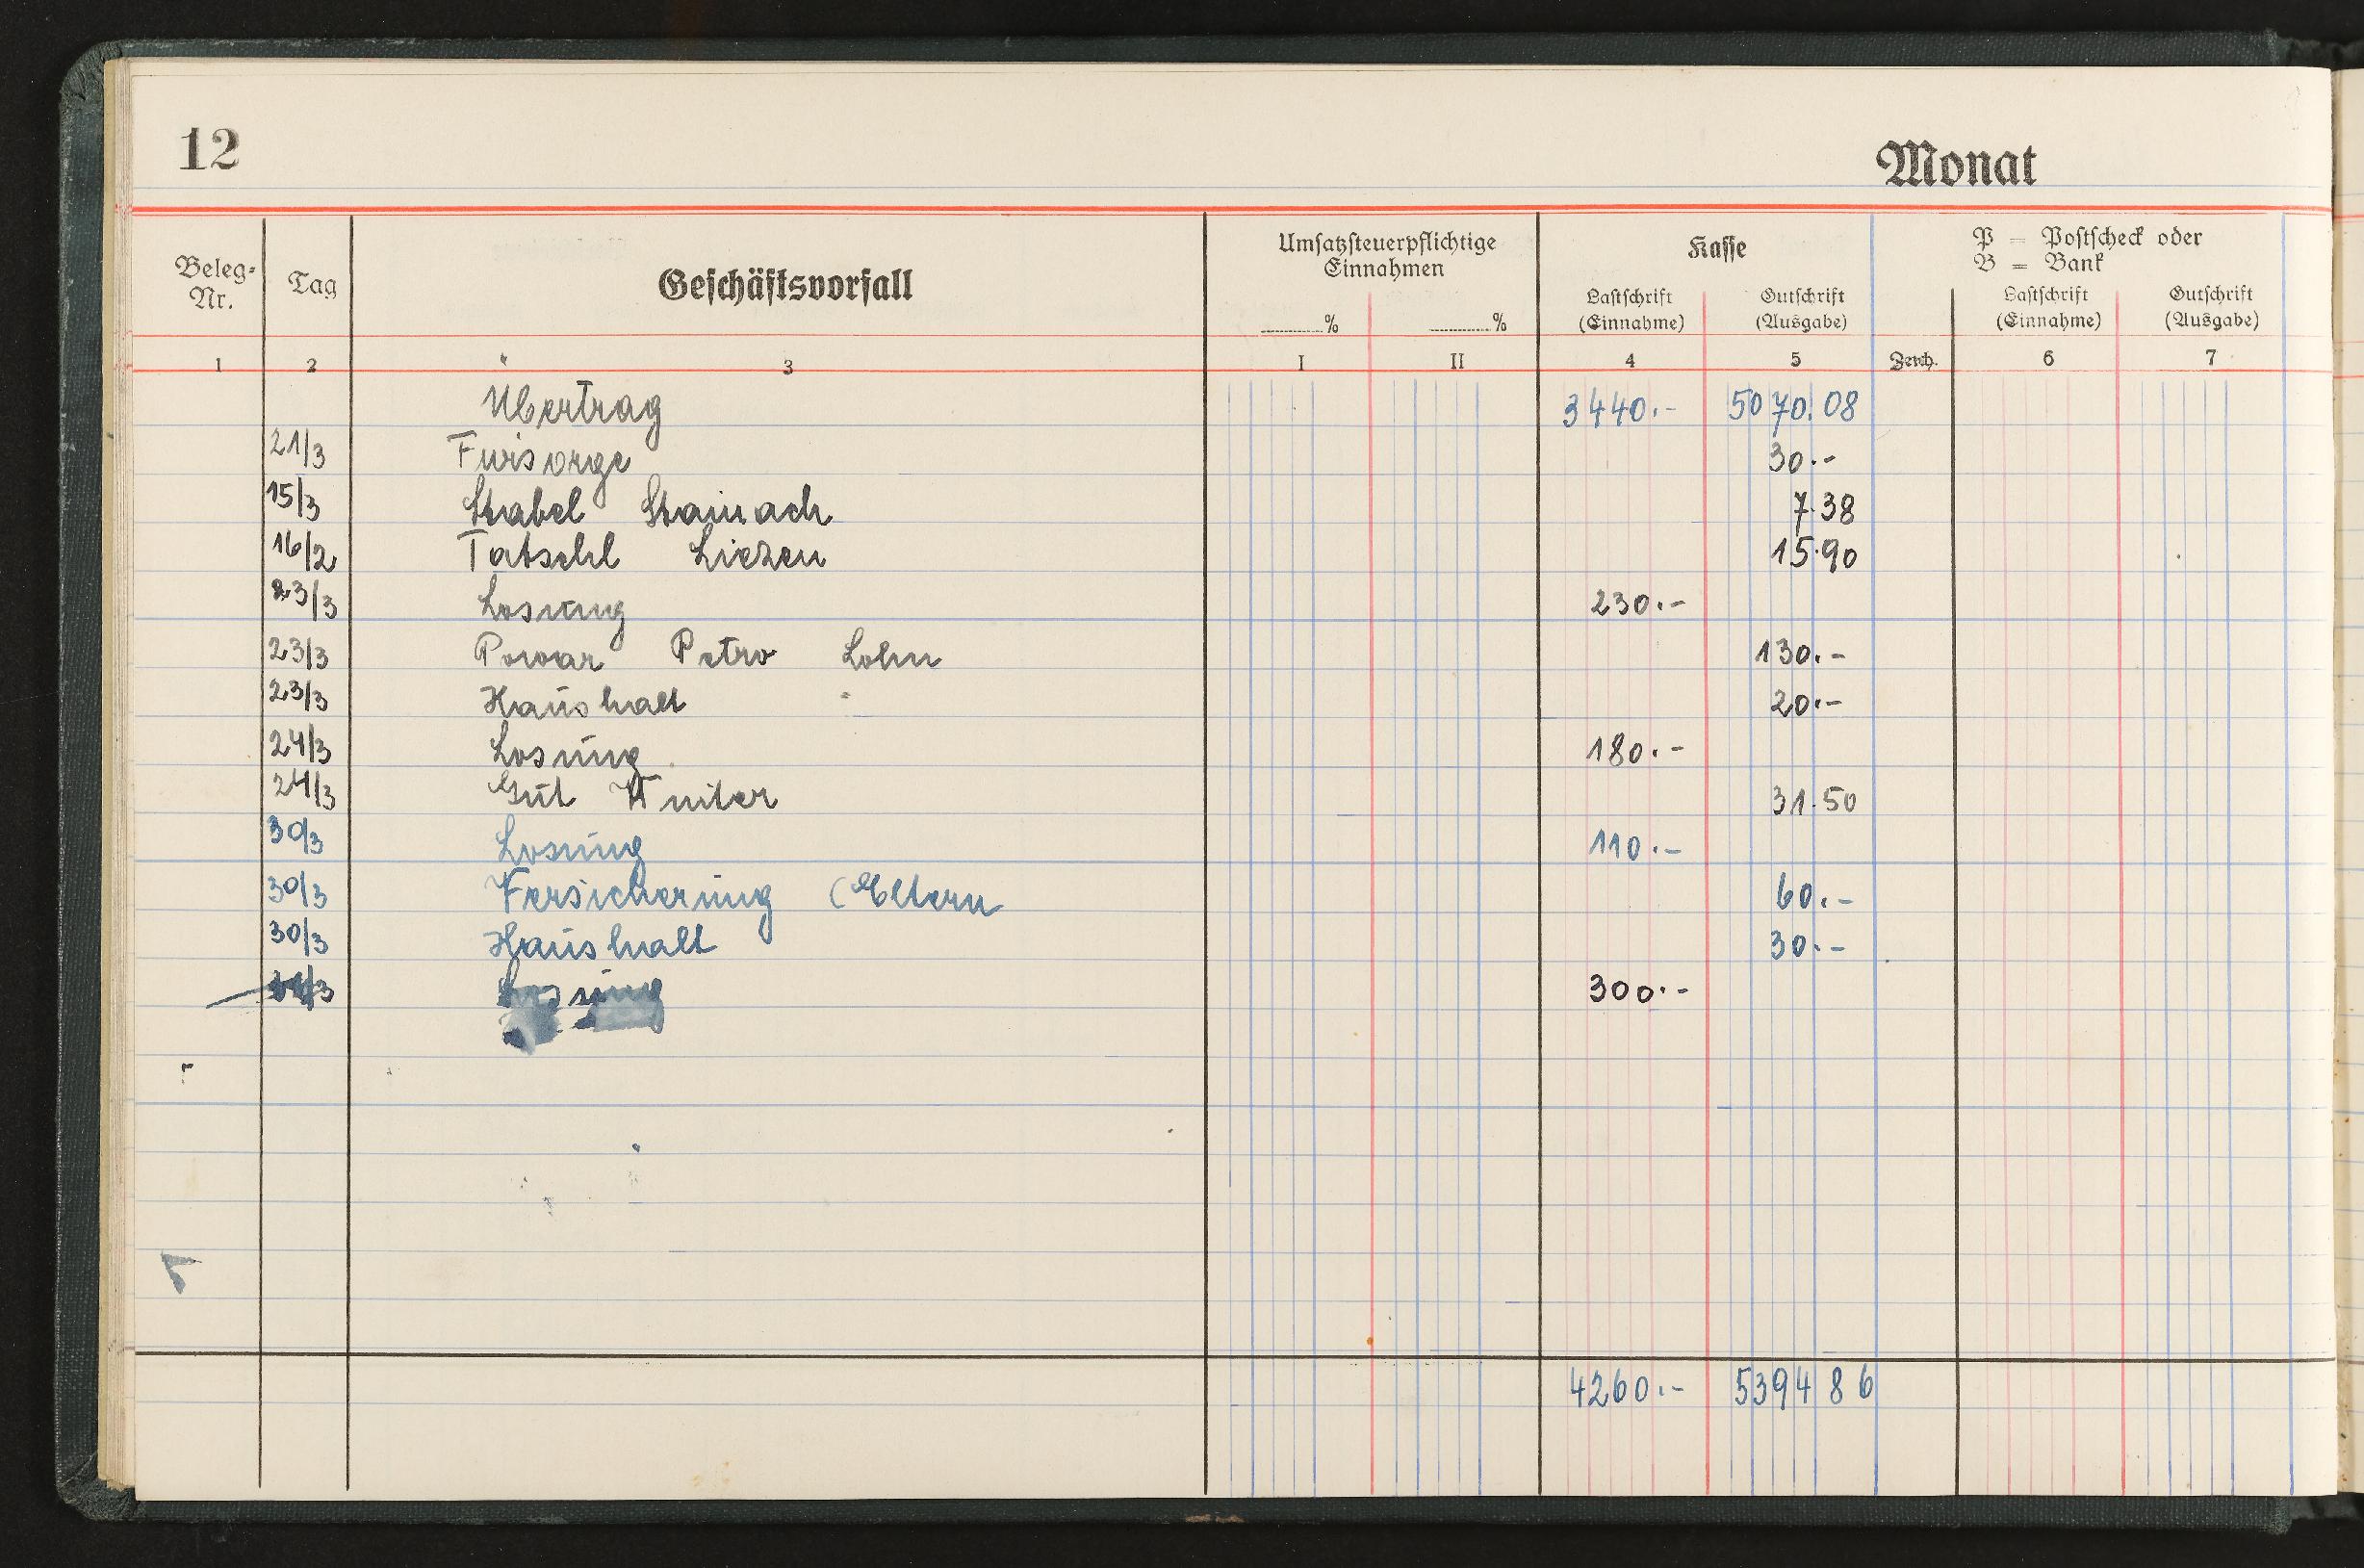 12
Monat
Beleg-Nr. Tag Geschäftsvorfall Umsatzsteuerpflichtige Einnahmen Kasse P = Postscheck oder B = Bank
% % Lastschrift (Einnahme) Gutschrift (Ausgabe) Lastschrift (Einnahme) Gutschrift (Ausgabe)
1 2 3 I II 4 5 Zeich. 6 7
Übertrag 3440.- 5070.08
21/3 Fürsorge 30.-
15/3 Strabel Stainach 7.38
16/2 Tatschl Liezen 15.90
23/3 Losung 230.-
23/3 Powar Petro Lohn 130.-
23/3 Haushalt 20.-
24/3 Losung 180.-
24/3 Gut 31.50
30/3 Losung 110.-
30/3 Versicherung (Eltern 60.-
30/3 Haushalt 30.-
Losung 300.-
4260.- 5394 86